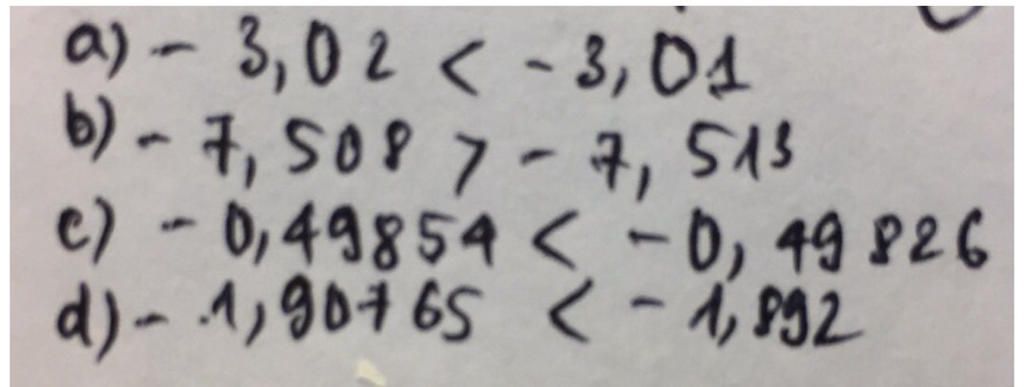 a) - 3,02 < -3,01
b) - 7,508 > - 7,513
c) - 0,49854 < - 0,49826
d) - 1,90765 < - 1,892